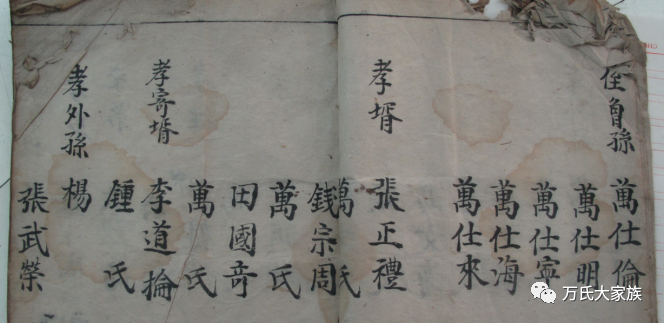 侄曾孫 萬仕倫
萬仕明
萬仕寧
萬仕海
萬仕來
孝壻 張正禮
萬氏
錢宗周
萬氏
田國奇
萬氏
孝寄壻 李道掄
鍾氏
孝外孫 楊
張武榮
万氏大家族